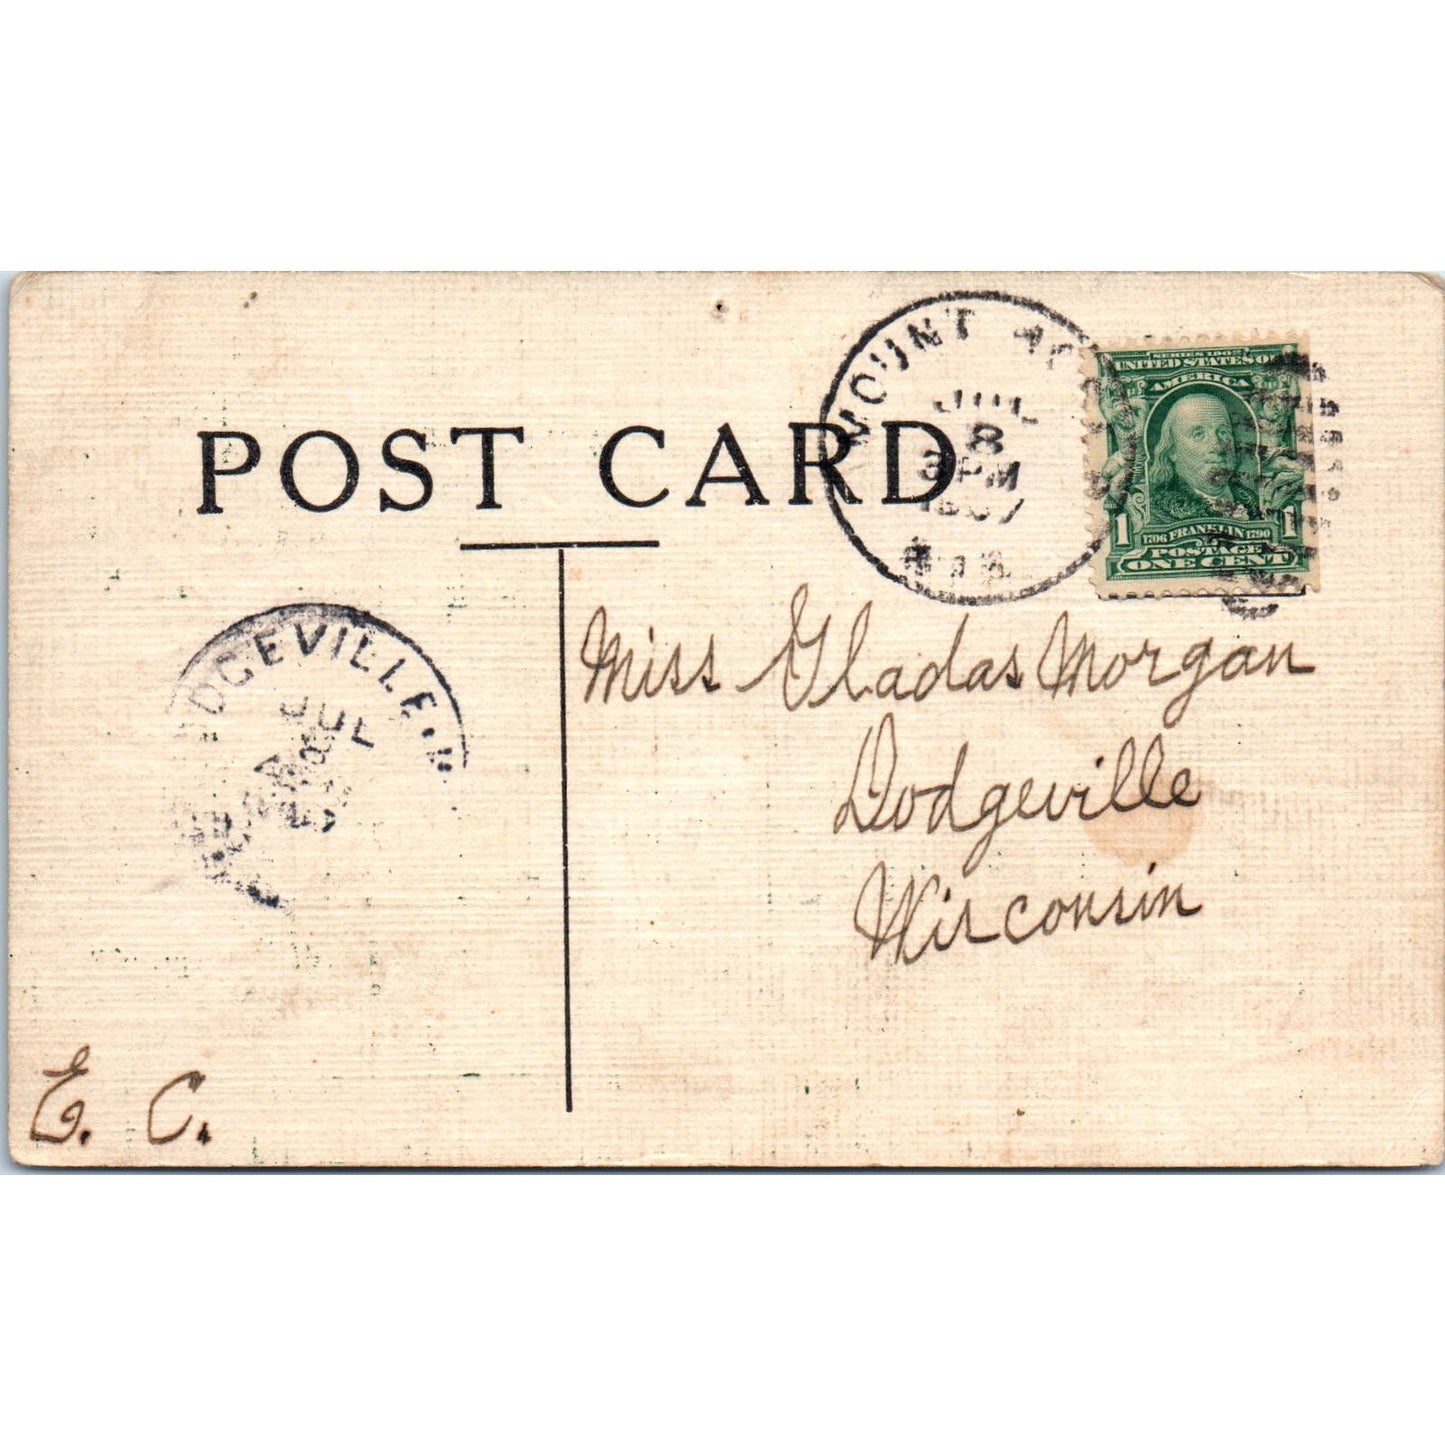 POST CARD
MOUNT
JUL
8
3 PM
1907
WIS.
SERIES 1902
UNITED STATES OF
AMERICA
1 1706 FRANKLIN 1790 1
POSTAGE
ONE CENT
DODGEVILLE
JUL
Miss Gladas Morgan
Dodgeville
Wisconsin
E. C.